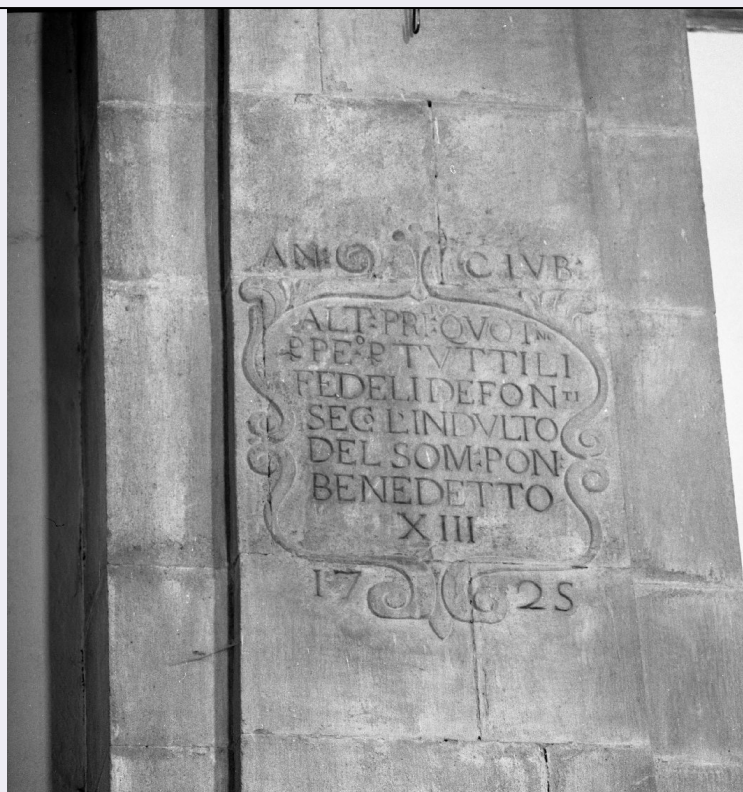 AN: CIVB:
ALT: PRI: QVOT.NO
P PE.O P TVTTI LI
FEDELI DEFON.TI
SEG L'INDVLTO
DEL SOM: PON:
BENEDETTO
XIII
17 25